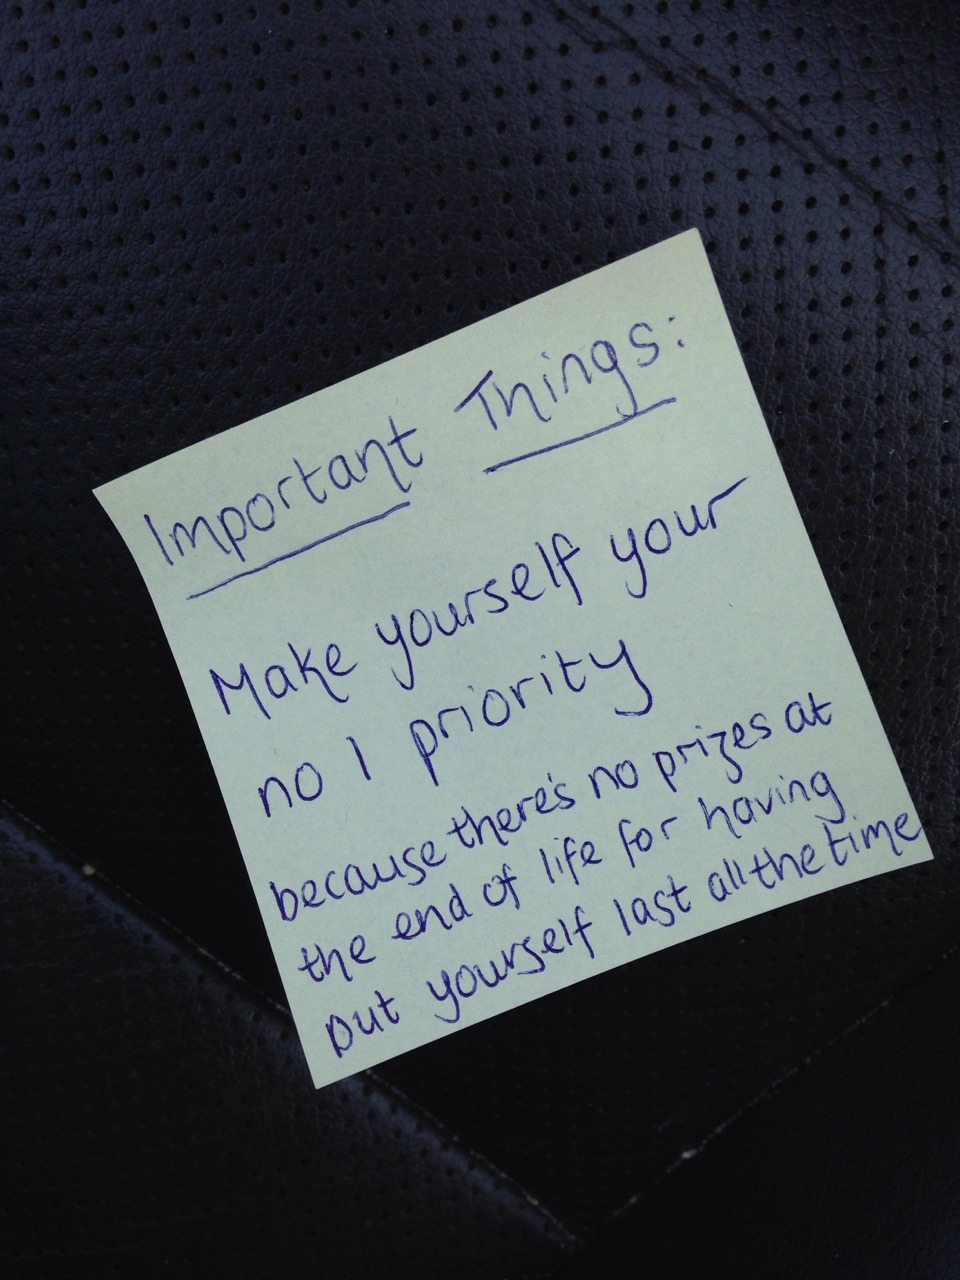 Important Things:
Make yourself your
no 1 priority
because there's no prizes at
the end of life for having
put yourself last all the time